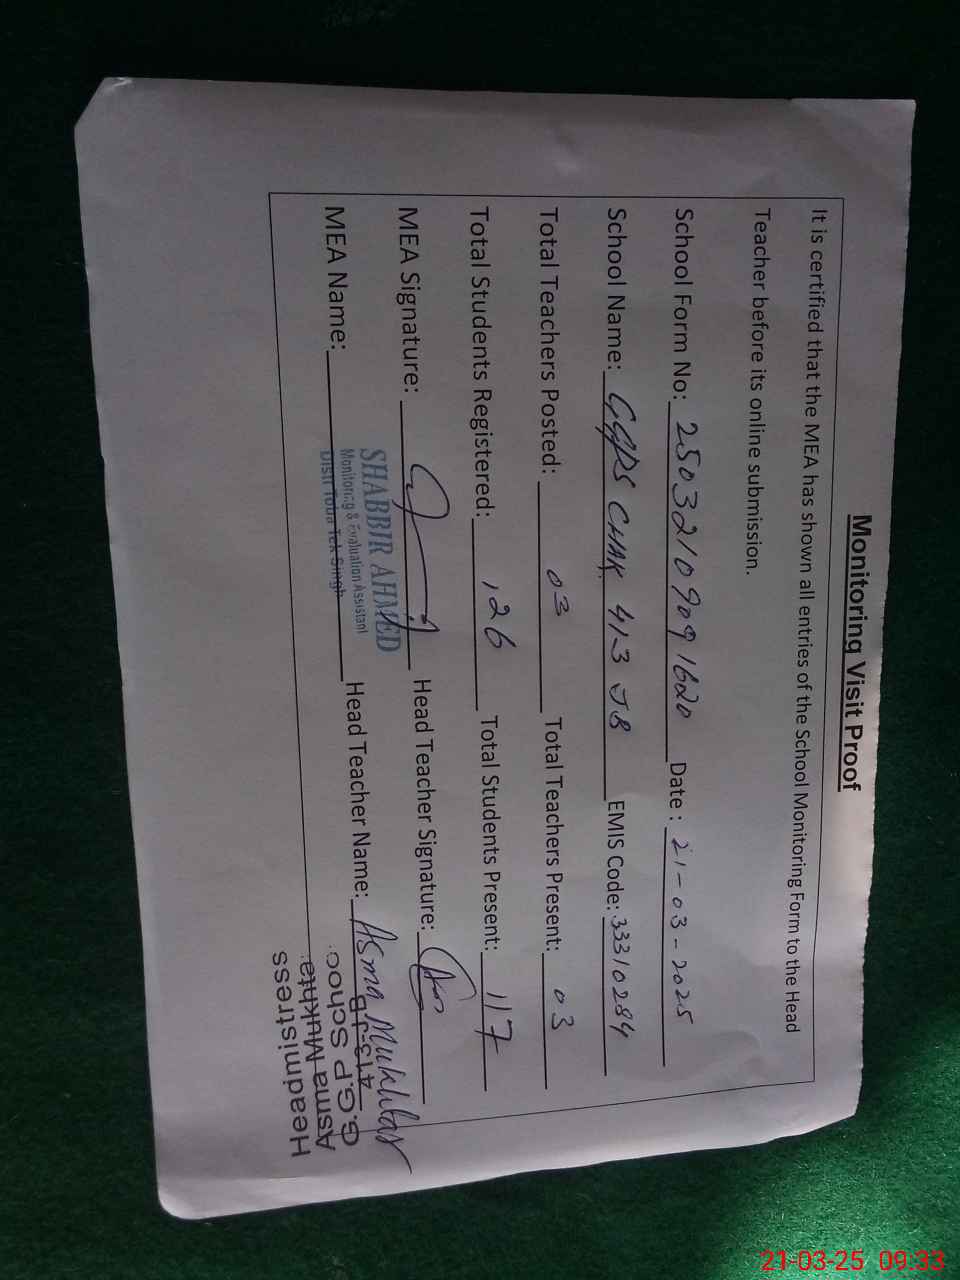 Monitoring Visit Proof
It is certified that the MEA has shown all entries of the School Monitoring Form to the Head
Teacher before its online submission.
School Form No: 25032109091620 Date : 21-03-2025
School Name: GGPS CHAK 413 JB EMIS Code: 33310284
Total Teachers Posted: 03 Total Teachers Present: 03
Total Students Registered: 126 Total Students Present: 117
MEA Signature: Head Teacher Signature:
SHABBIR AHMED
Monitoring & Evaluation Assistant
Distt Toba Tek Singh
MEA Name: Head Teacher Name: Asma Mukhtar
Headmistress
Asma Mukhta
G.G.P Schoo
413-J-B
21-03-25 09:33